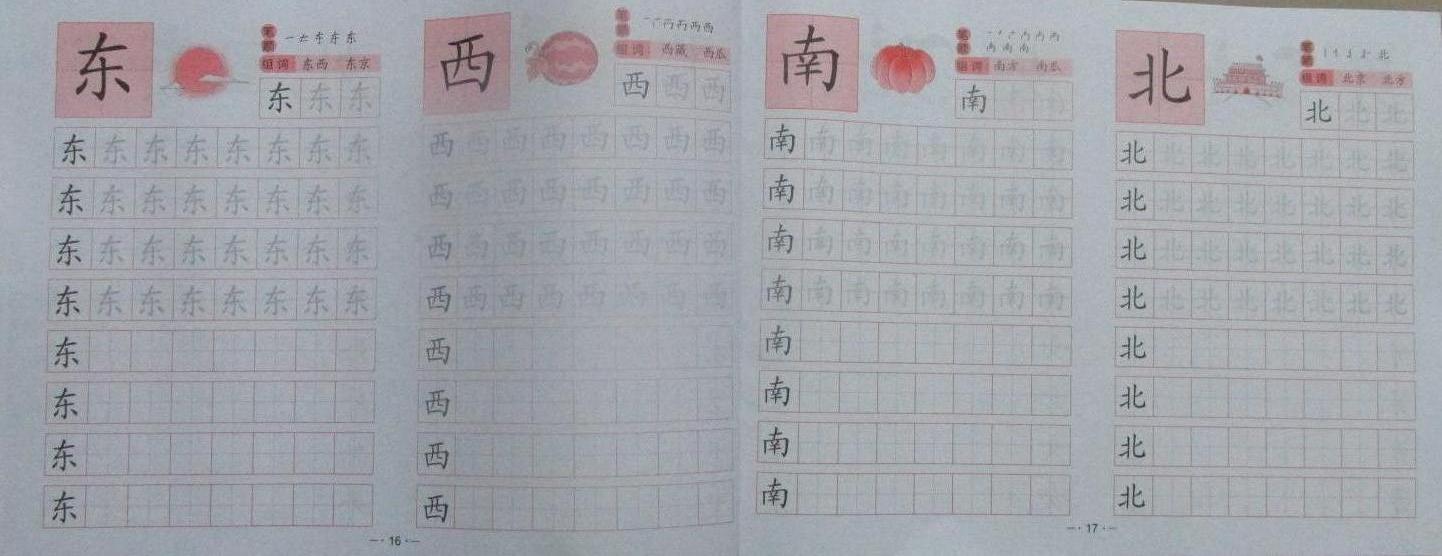 东
笔顺
组词 东西 东京
东 东 东
东 东 东 东 东 东 东 东
东 东 东 东 东 东 东 东
东 东 东 东 东 东 东 东
东 东 东 东 东 东 东 东
东
东
东
东
西
笔顺
组词 西藏 西瓜
西 西 西
西 西 西 西 西 西 西 西
西 西 西 西 西 西 西 西
西 西 西 西 西 西 西 西
西 西 西 西 西 西 西 西
西
西
西
西
一·16·一
南
笔顺
组词 南方 南瓜
南 南 南
南 南 南 南 南 南 南 南
南 南 南 南 南 南 南 南
南 南 南 南 南 南 南 南
南 南 南 南 南 南 南 南
南
南
南
南
北
笔顺
组词 北京 北方
北 北 北
北 北 北 北 北 北 北 北
北 北 北 北 北 北 北 北
北 北 北 北 北 北 北 北
北 北 北 北 北 北 北 北
北
北
北
北
一·17·一